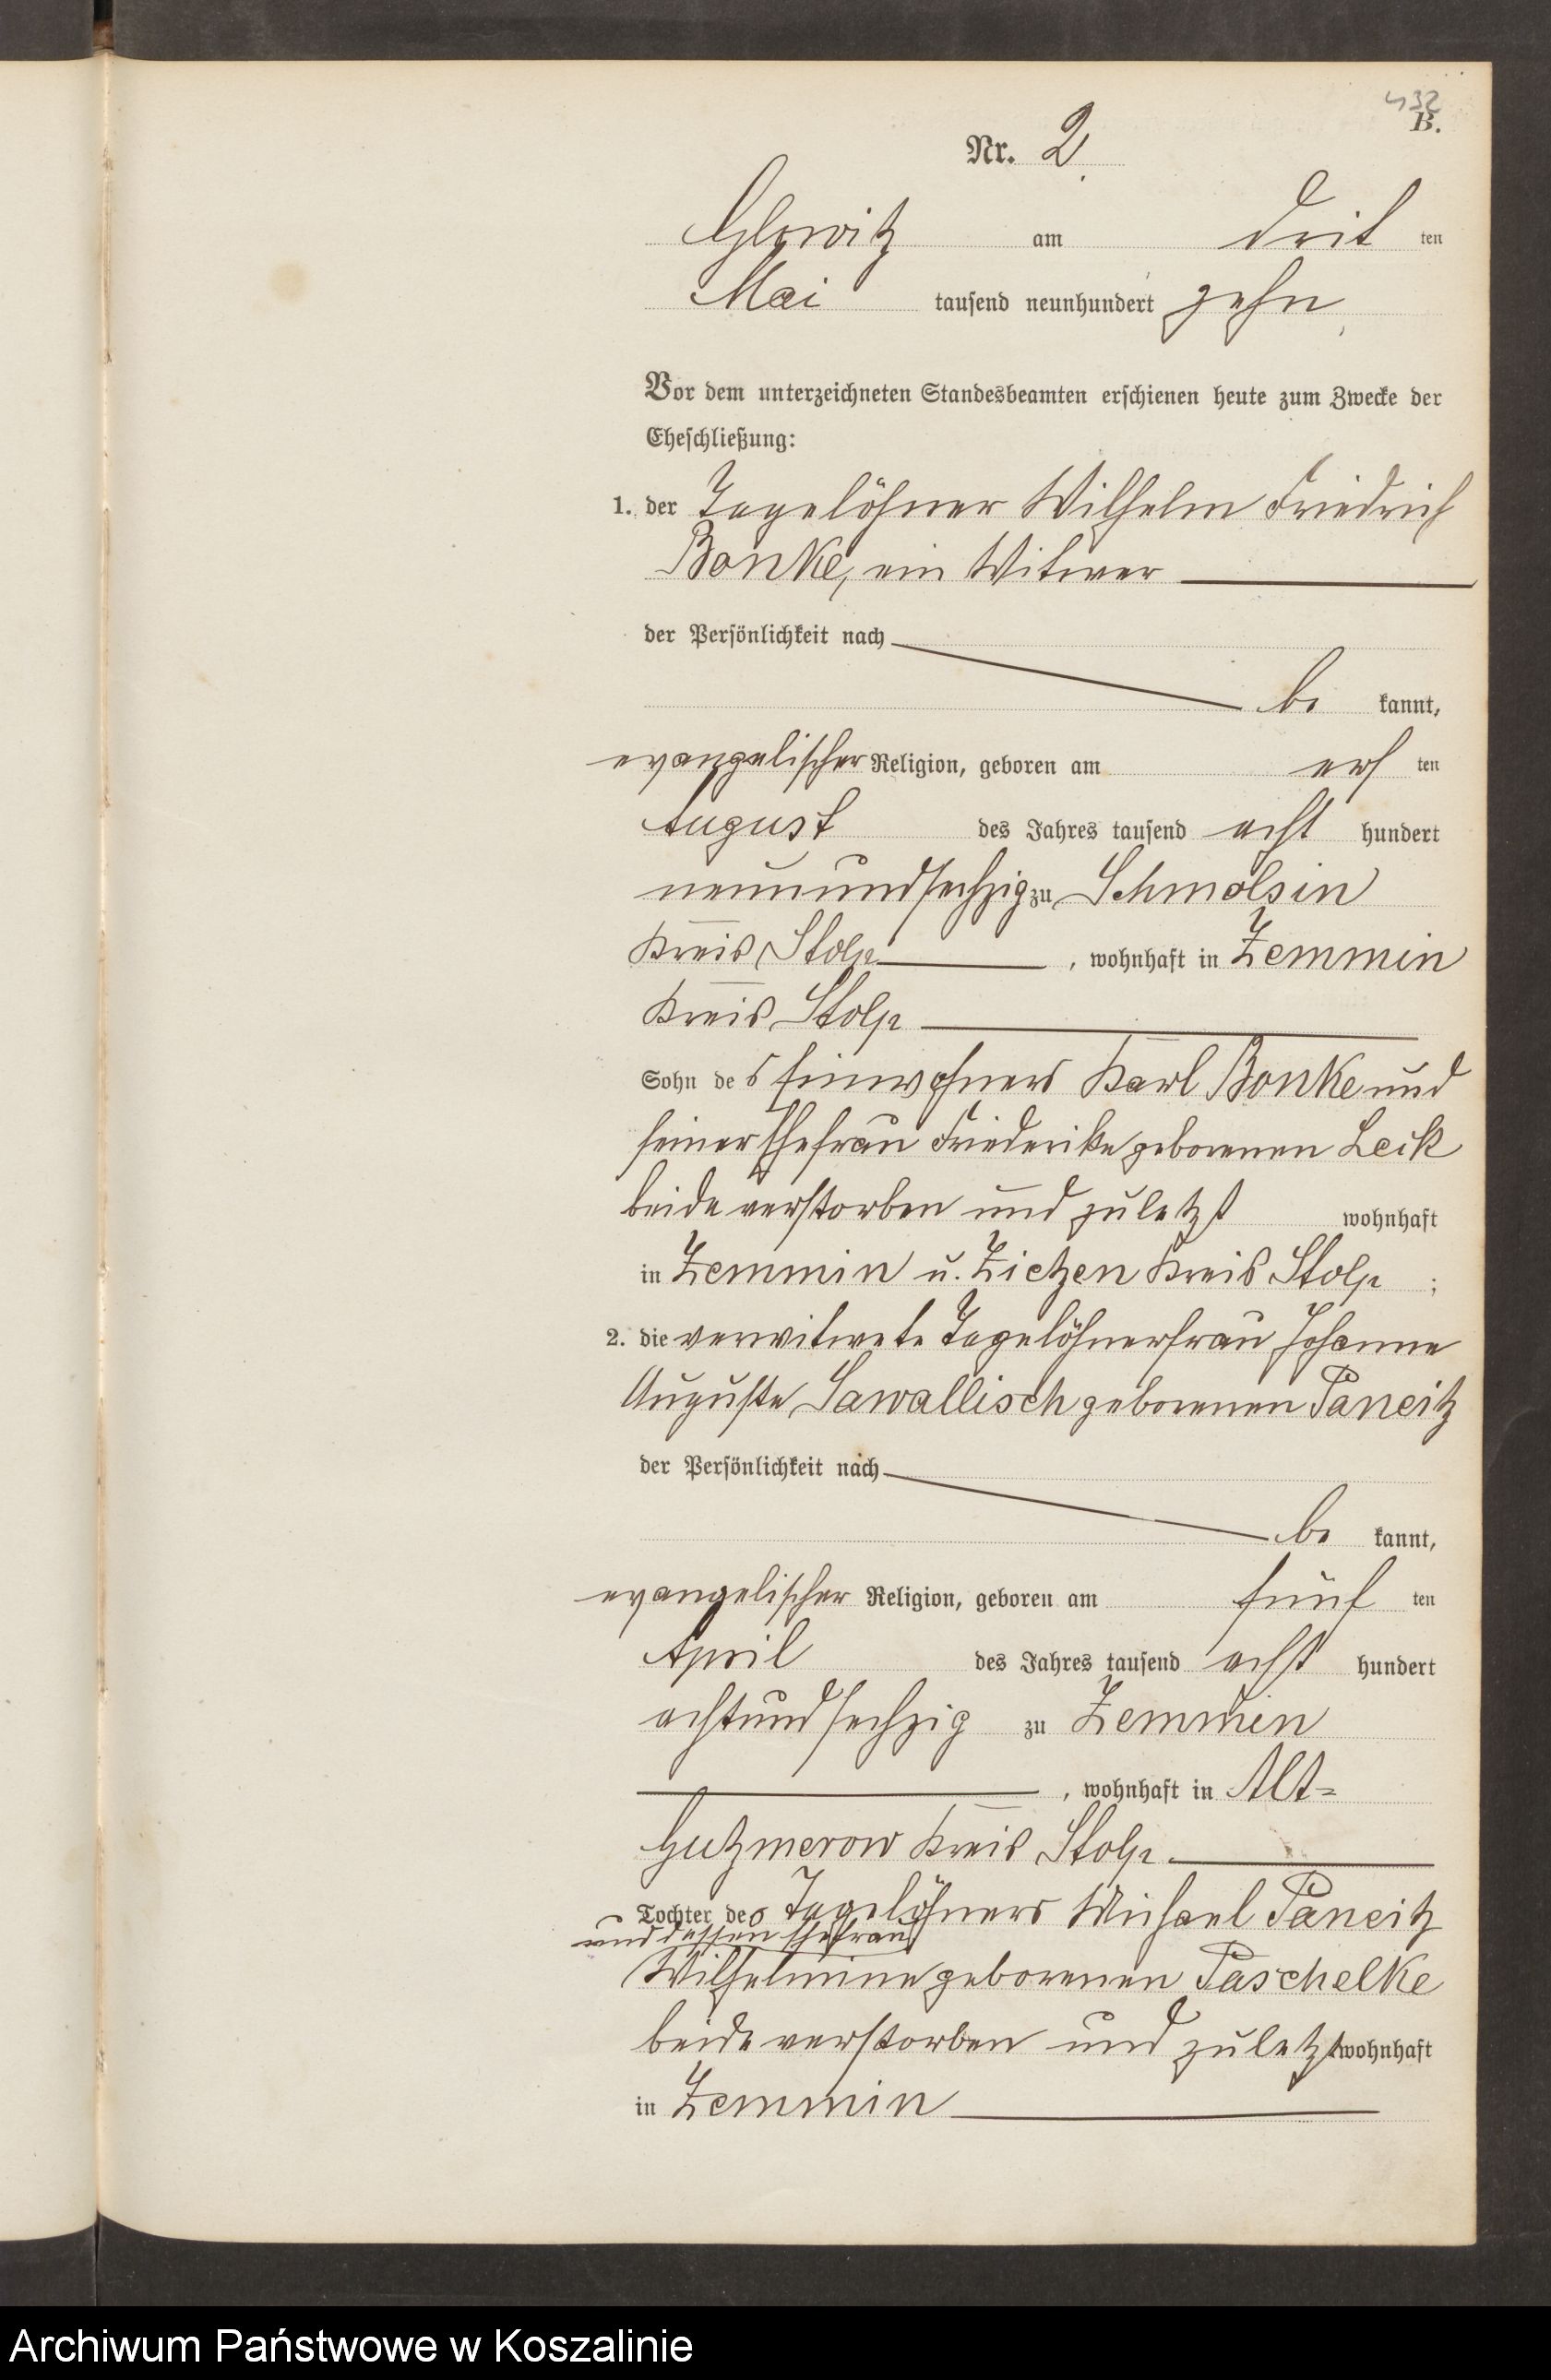 432
B.
Nr. 2.
Glowitz am drit ten
Mai tausend neunhundert zehn
Vor dem unterzeichneten Standesbeamten erschienen heute zum Zwecke der
Eheschließung:
1. der Tagelöhner Wilhelm Friedrich
Bonke, ein Witwer
der Persönlichkeit nach
be kannt,
evangelischer Religion, geboren am ers ten
August des Jahres tausend acht hundert
neunundsechzig zu Schmolsin
Kreis Stolp, wohnhaft in Zemmin
Kreis Stolp
Sohn des Einwohners Karl Bonke und
seiner Ehefrau Friederike geborenen Leik
beide verstorben und zuletzt wohnhaft
in Zemmin u. Zietzen Kreis Stolp ;
2. die verwitwete Tagelöhnerfrau Johanne
Auguste Sawallisch geborenen Paneitz
der Persönlichkeit nach
be kannt,
evangelischer Religion, geboren am fünf ten
April des Jahres tausend acht hundert
achtundsechzig zu Zemmin
, wohnhaft in Alt=
Gutzmerow Kreis Stolp
Tochter des Tagelöhners Michael Paneitz
und dessen Ehefrau
Wilhelmine geborenen Paschelke
beide verstorben und zuletzt wohnhaft
in Zemmin
Archiwum Państwowe w Koszalinie